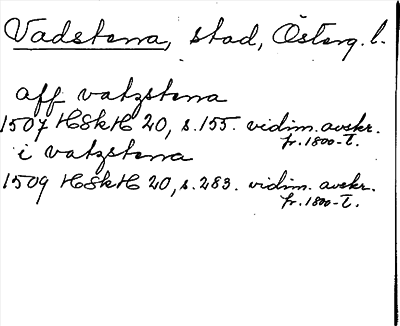 Vadstena, stad, Österg. l.
aff vatzstena
1507 HSkH 20, s. 155. vidim. avskr.
fr. 1800-t.
i vatzstena
1509 HSkH 20, s. 283. vidim. avskr.
fr. 1800-t.